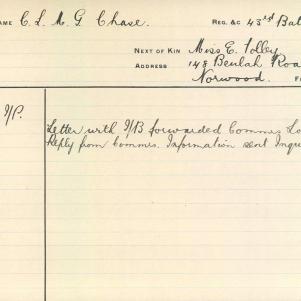 NAME C. L. M. G Chase. REG. &C 43rd Bat
NEXT OF KIN Miss E. Tolley
ADDRESS 148 Beulah Roa
Norwood.
I/P.
Letter with I/B forwarded Commrs Lo
Reply from Commrs. Information sent Inqui